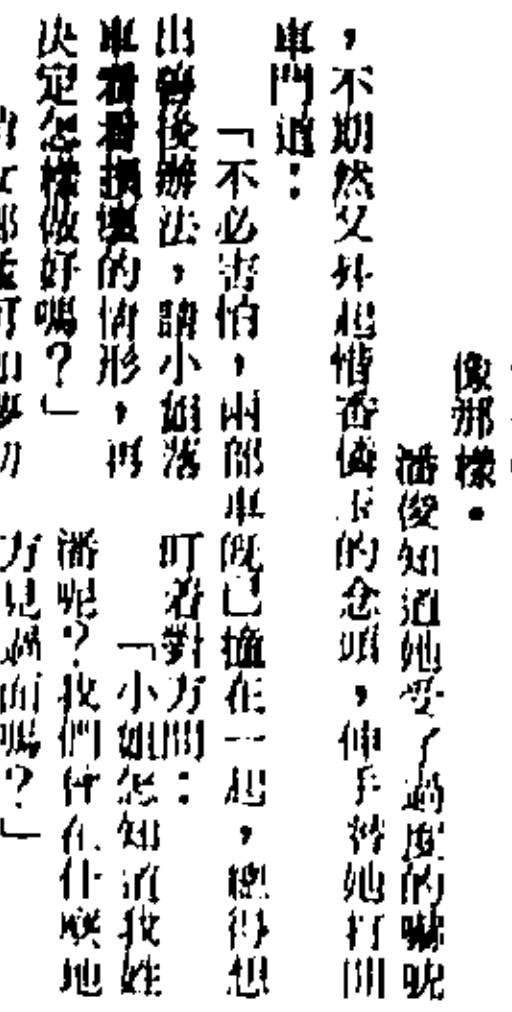 像那樣。
潘俊知道她受了過度的嚇唬
，不期然又升起惜香憐玉的念頭，伸手替她打開
車門道：
「不必害怕，兩部車既已撞在一起，總得想
出善後辦法，請小姐落
車看看損壞的情形，再
決定怎樣做好嗎？」
叮着對方問：
「小姐怎知道我姓
潘呢？我們曾在什麽地
方見過面嗎？」